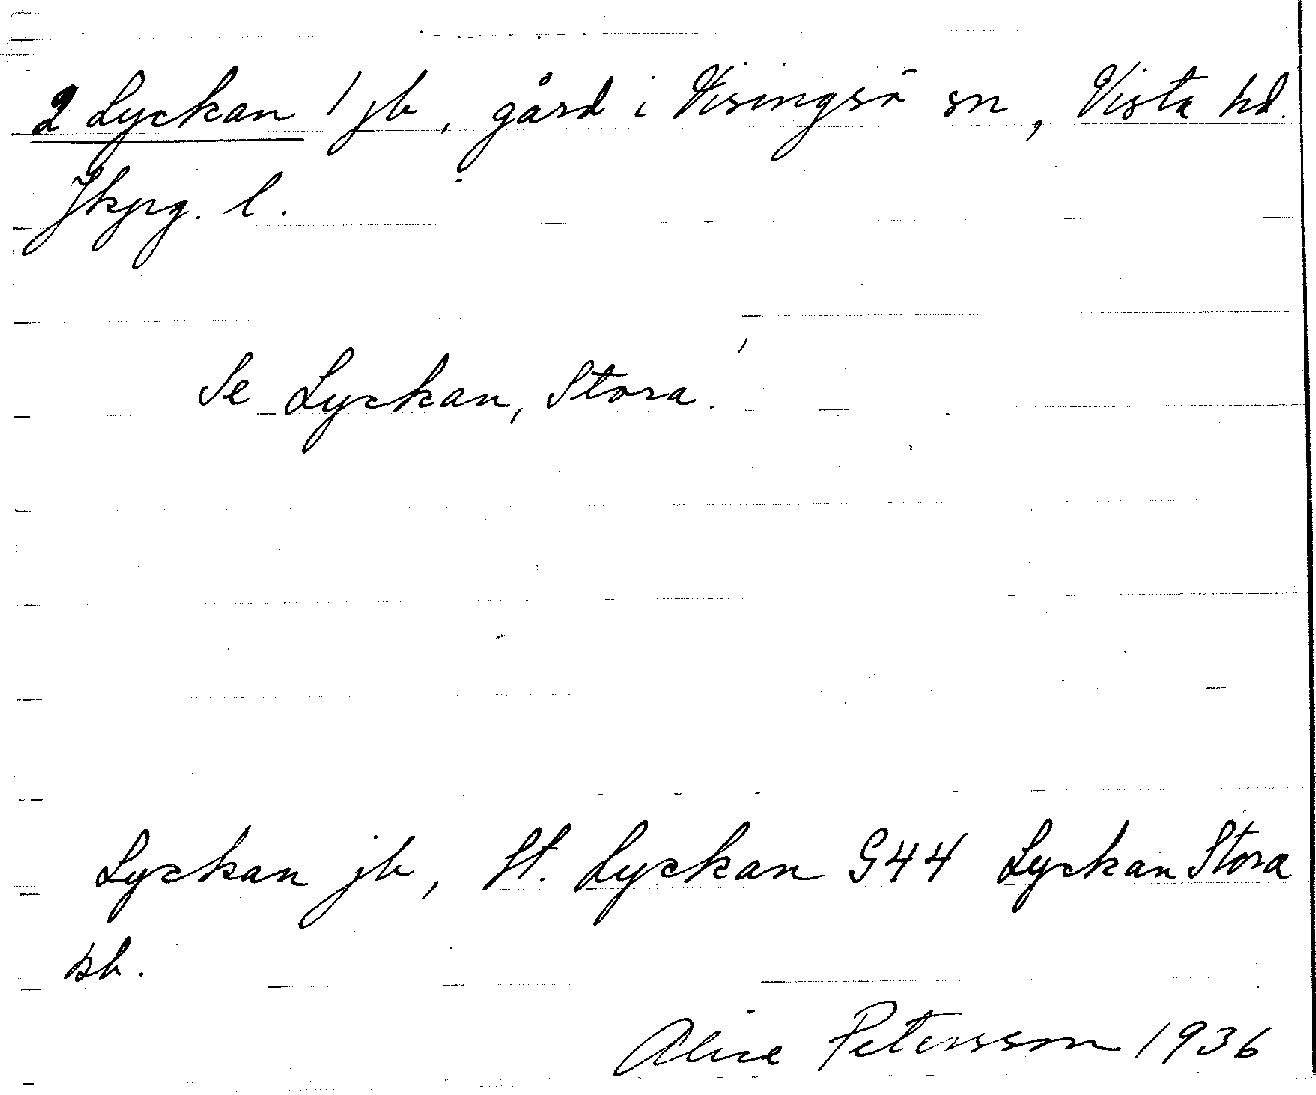 2 Lyckan 1 jb, gård i Visingsö sn, Vista hd.
Jkpg. l.
Se Lyckan, Stora.
Lyckan jb, St. Lyckan G44 Lyckan Stora
kb.
Alice Petersson 1936